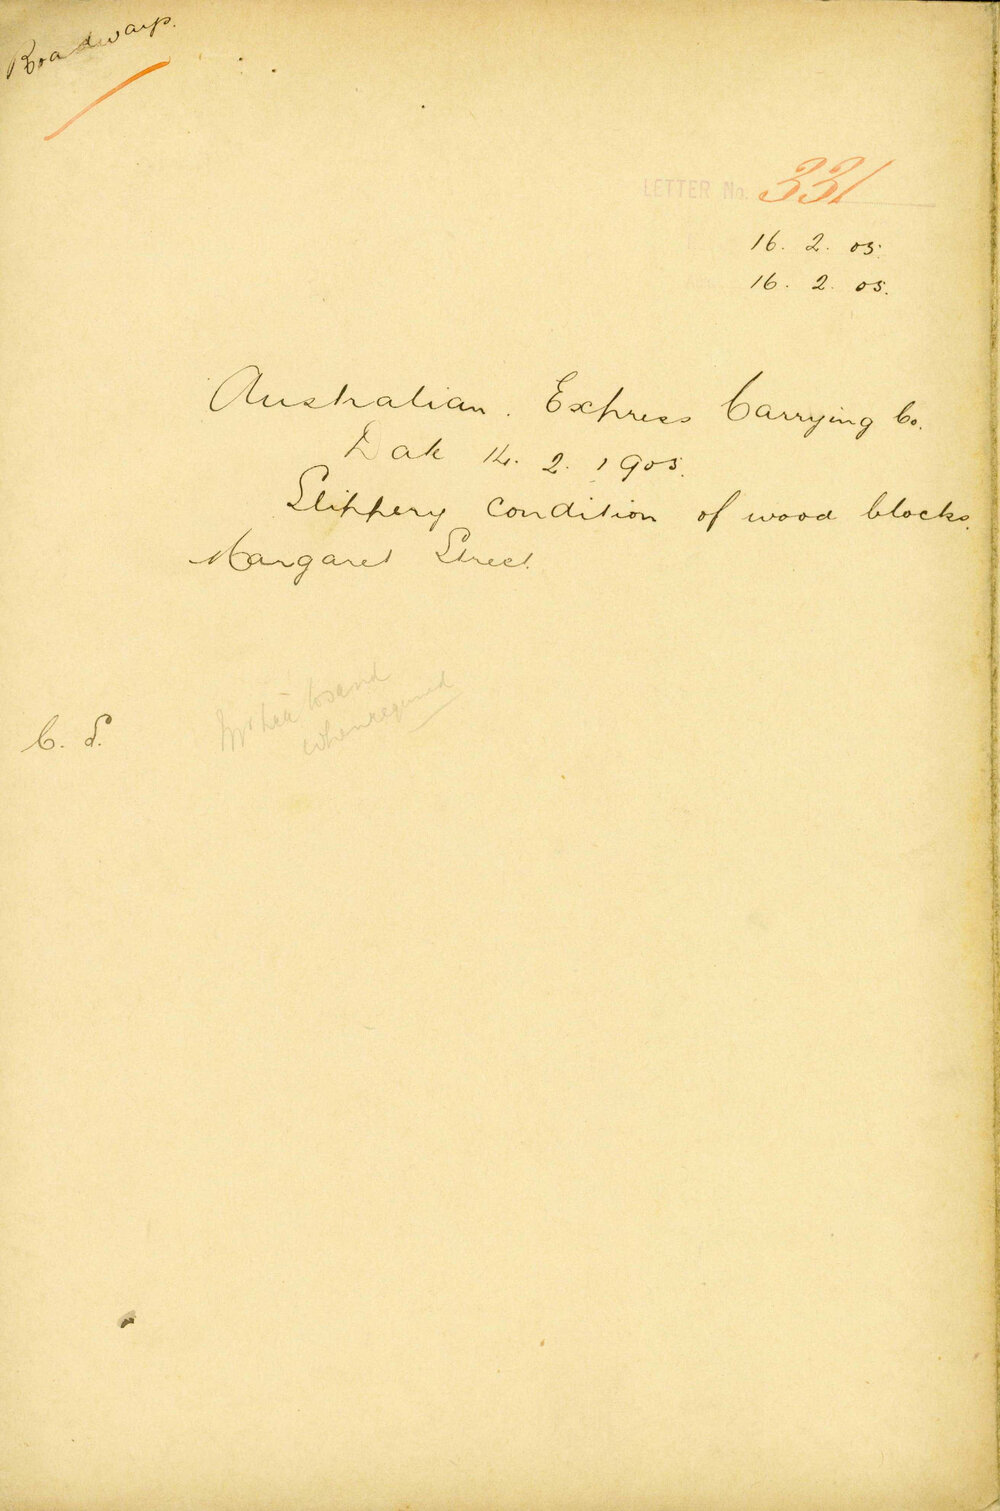 Roadways.
LETTER No. 331
16. 2. 05.
16. 2. 05.
Australian. Express Carrying Co.
Date 14. 2. 1905.
Slippery condition of wood blocks.
Margaret Street.
to sand
when required
C. S.